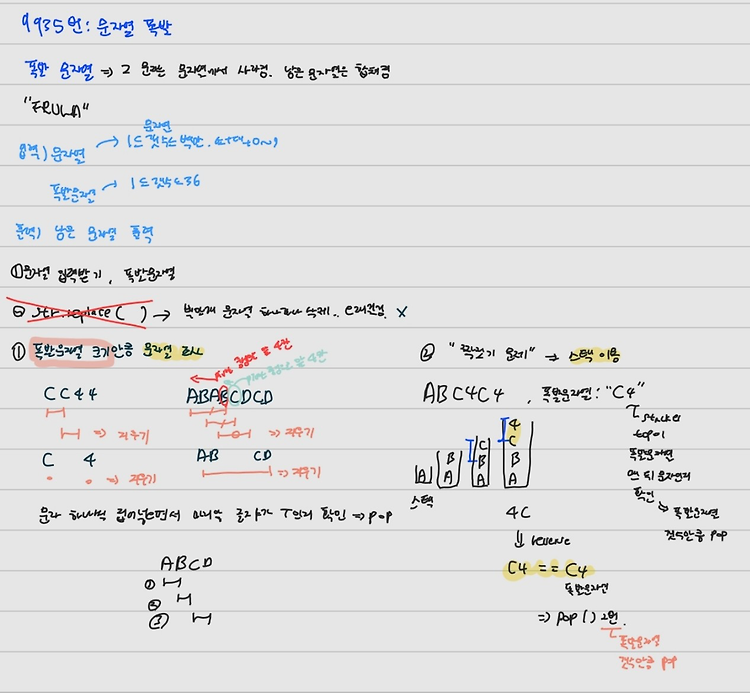 9935번: 문자열 폭발
폭발 문자열 => 그 문자는 문자열에서 사라짐. 남은 문자열은 합쳐짐
"FRULA"
입력) 문자열 → 문자열 1≤갯수≤백만
폭발문자열 → 1≤갯수≤36
출력) 남은 문자열 출력
① 문자열 입력받기, 폭발문자열
② str.replace( ) → 백만개 문자열 하나하나 삭제.. 오래걸림 X
① 폭발문자열 크기만큼 문자열 검사
CC44
=> 지우기
C 4
=> 지우기
ABABCDCD
=> 지우기
AB CD
=> 지우기
문자 하나씩 집어넣으면서 마지막 글자가 T인지 확인 => pop
ABCD
①
②
③
② "짝짓기 문제" => 스택 이용
ABC4C4, 폭발문자열: "C4"
A
B
A
C
B
A
4
C
B
A
스택
stack의
top이
폭발문자열
맨 뒤 문자인지
확인
폭발문자열
갯수만큼 pop
4C
reverse
C4 == C4
폭발문자열
=> pop() 2번.
폭발문자열
갯수만큼 pop